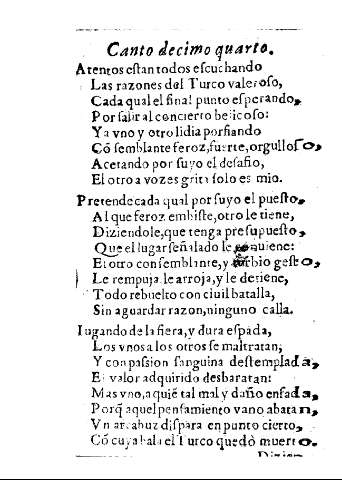 Canto decimo quarto.
Atentos estan todos escuchando
Las razones del Turco valeroso,
Cada qual el final punto esperando,
Por salir al concierto belicoso:
Ya vno y otro lidia porfiando
Cõ semblante feroz, fuerte, orgulloso,
Acetando por suyo el desafio,
El otro a vozes grita solo es mio.
Pretende cada qual por suyo el puesto,
Al que feroz embiste, otro le tiene,
Diziendole, que tenga presupuesto,
Que el lugar señalado le conuiene:
El otro con semblante, y gesto,
Le rempuja, le arroja, y le detiene,
Todo rebuelto con ciuil batalla,
Sin aguardar razon, ninguno calla.
Iugando de la fiera, y dura espada,
Los vnos a los otros se maltratan,
Y con passion sanguina destemplada,
El valor adquirido desbaratan:
Mas vno, a quiẽ tal mal y daño enfada,
Porq̃ aquel pensamiento vano abatan,
Vn arcabuz dispara en punto cierto,
Cõ cuya bala el Turco quedò muerto.